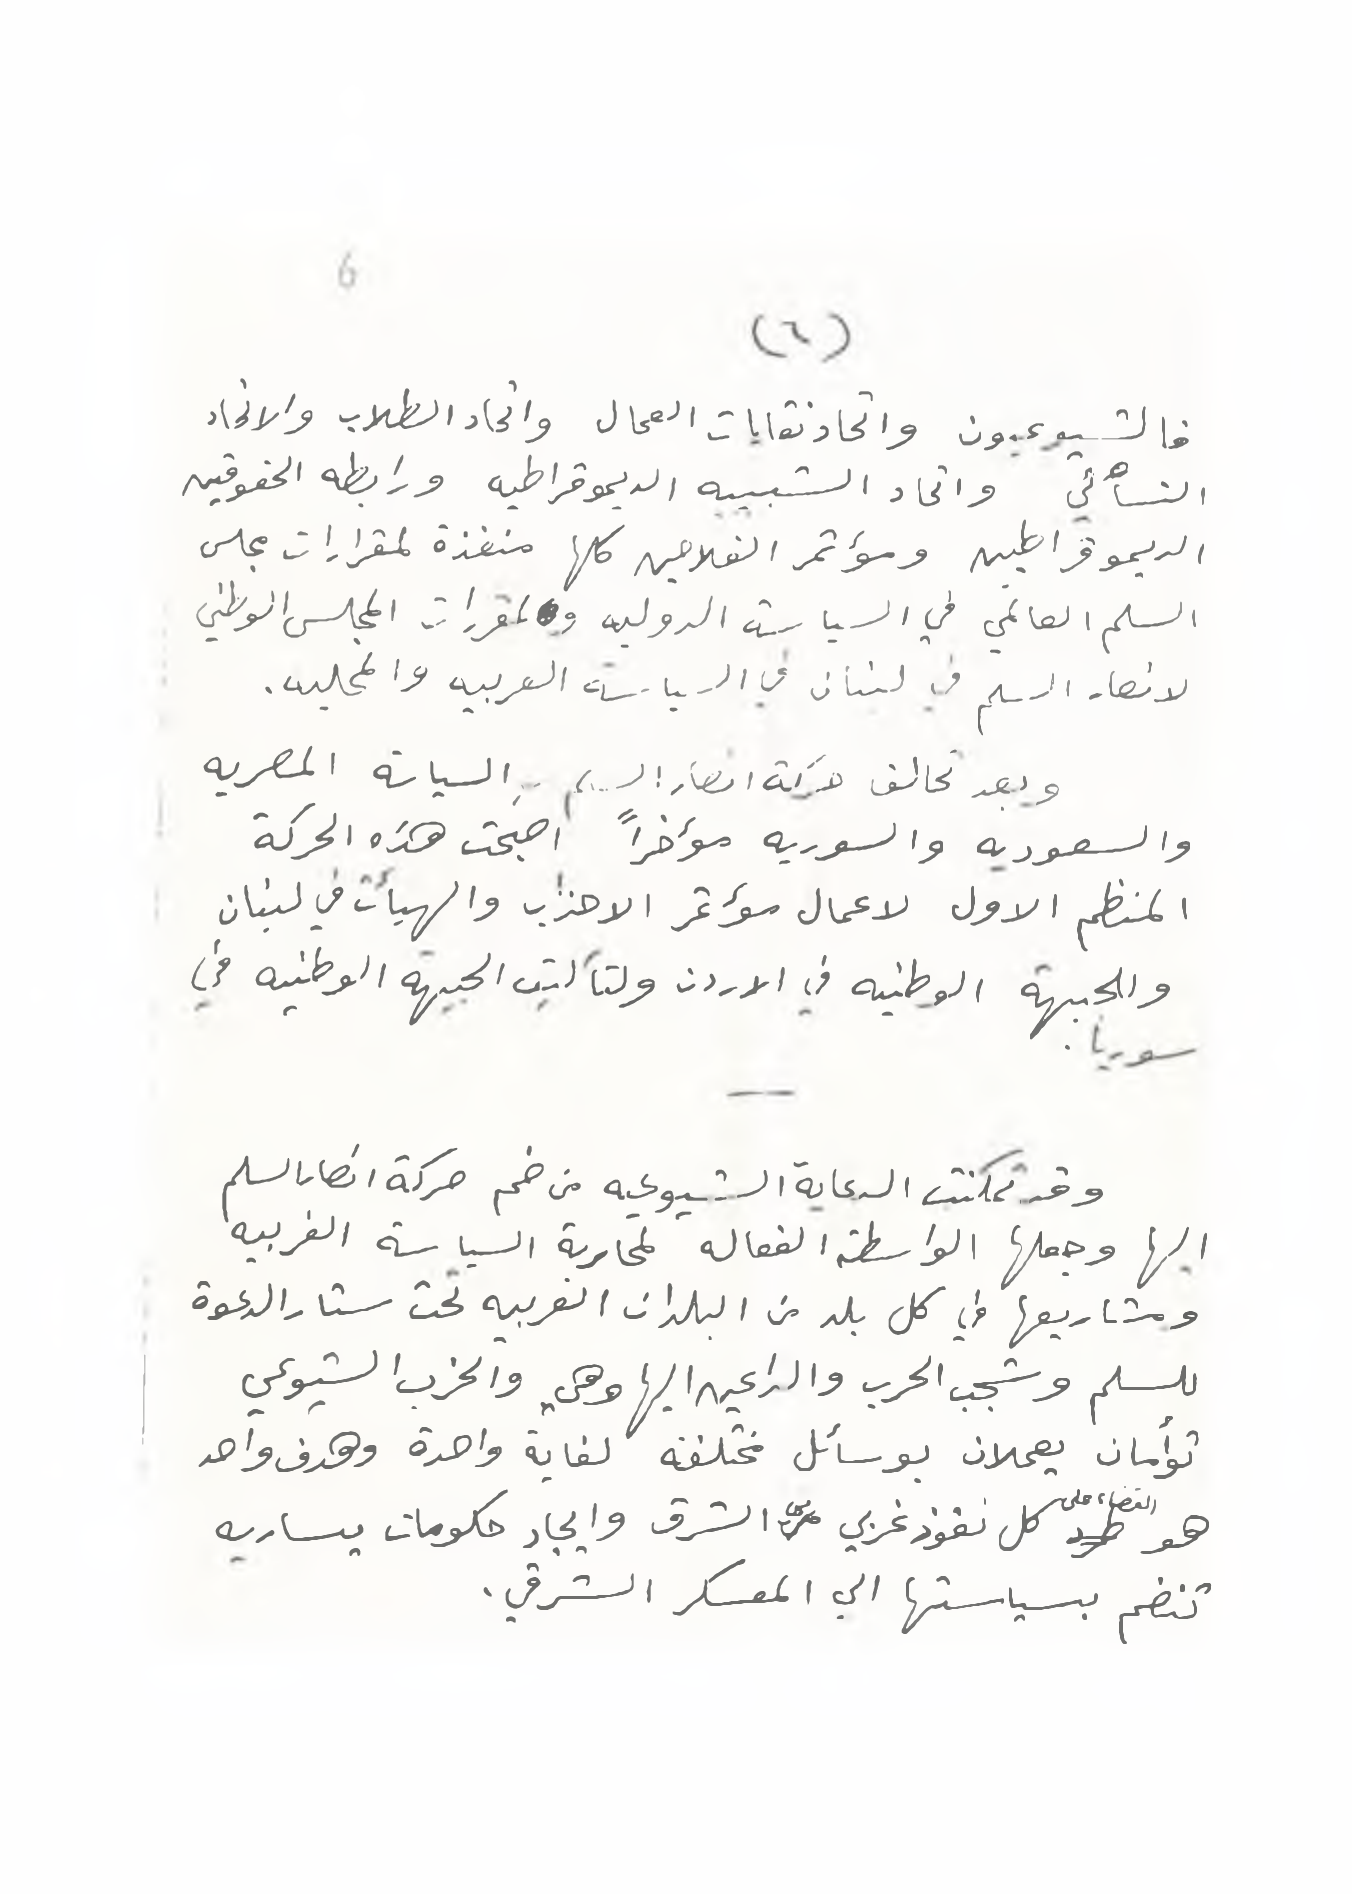 6
(٦)
فالشيوعيون واتحاد نقابات العمال واتحاد الطلاب والاتحاد
النسائي واتحاد الشبيبه الديموقراطيه ورابطه الحقوقيين
الديموقراطيين ومؤتمر الفلاحين كلها منفذة لمقرارات مجلس
السلم العالمي في السياسة الدوليه ولمقررات المجلس الوطني
لانصار السلم في لبنان في السياسة العربيه والمحليه.
وبعد تحالف حركة انصار السلم والسياسة المصريه
والسعوديه والسوريه مؤخراً اصبحت هذه الحركة
المنظم الاول لاعمال مؤتمر الاحزاب والهيأت في لبنان
وللجبهة الوطنيه في الاردن ولتأليف الجبهة الوطنيه في
سوريا.
وقد تمكنت الدعاية الشيوعيه من ضم حركة انصار السلم
اليها وجعلها الواسطة الفعاله لمحاربة السياسة الغربيه
ومشاريعها في كل بلد من البلدان العربيه تحت ستار الدعوة
للسلم وشجب الحرب والداعين اليها وهي والحزب الشيوعي
توأمان يعملان بوسائل مختلفه لغاية واحدة وهدف واحد
هو القضاء على كل نفوذ غربي الشرق وايجاد حكومات يساريه
تنضم بسياستها الى المعسكر الشرقي.